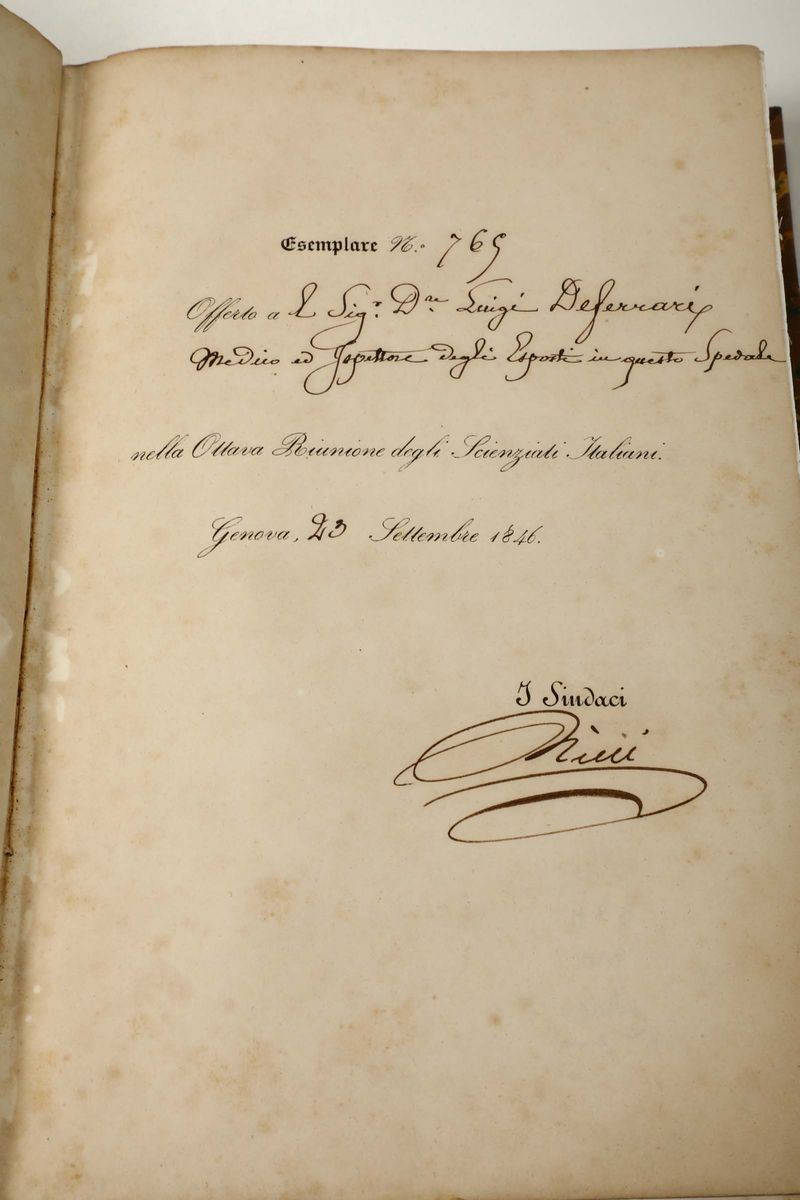 Esemplare N.º 765
Offerto a l Sig.r D.re Luigi Deferrari
Medico ed Ispettore degli Esposti in questo Spedale
nella Ottava Riunione degli Scienziati Italiani.
Genova, 23 Settembre 1846.
I Sindaci